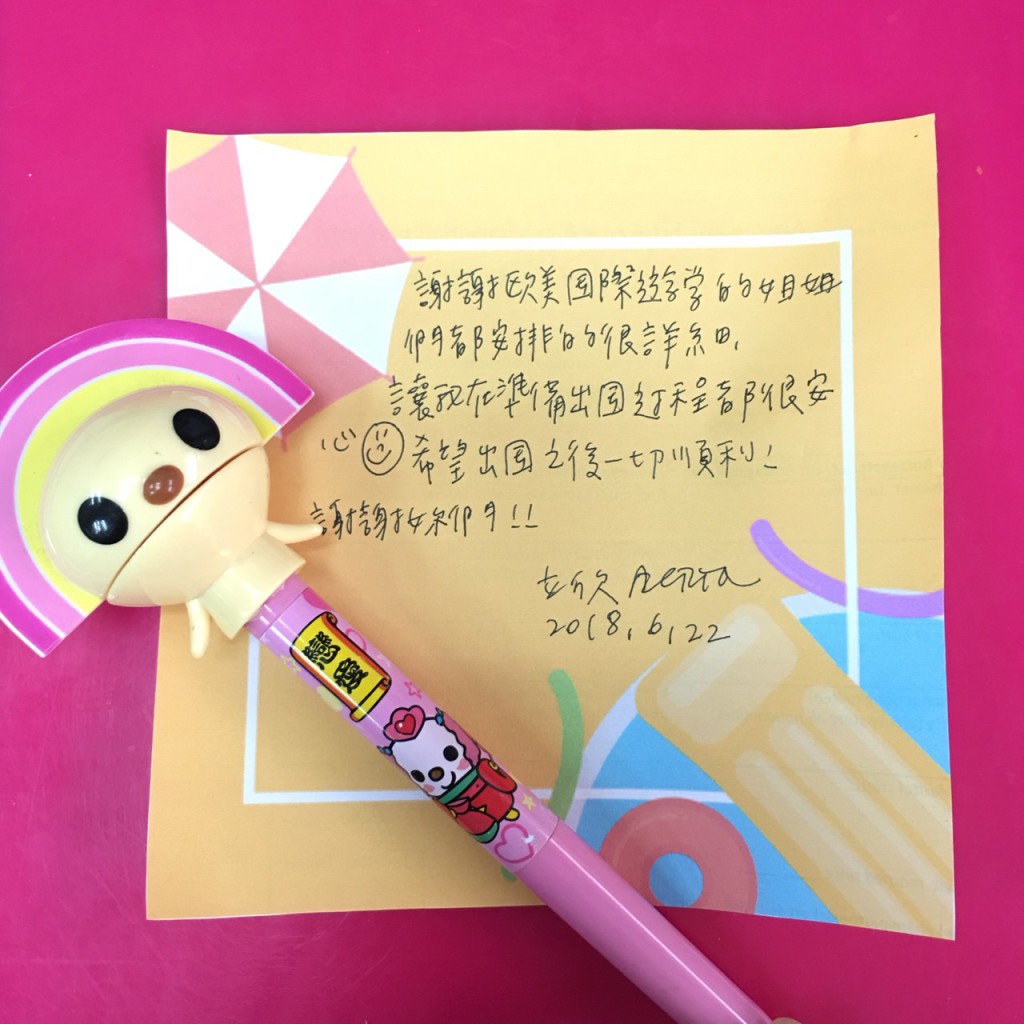 謝謝欧美国際遊学的姐姐
們都安排的很詳細,
讓我在準備出国过程都很安
心 希望出国之後一切順利!
謝謝妳們!!
2018.6.22